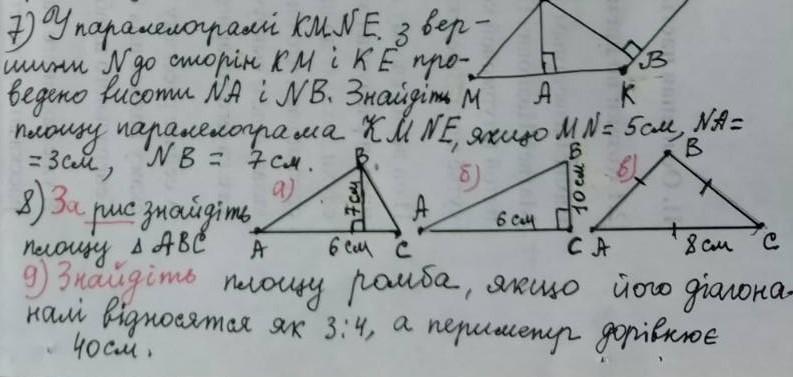 7) У паралелограмі KMNE з вер-
шини N до сторін KM і KE про-
ведено висоти NA і NB. Знайдіть
площу паралелограма KMNE, якщо MN = 5см, NA =
= 3см, NB = 7см.
M A K B
8) За рис знайдіть
площу △ ABC
а) A B C 7см 6 см
б) A B C 10 см 6см
в) A B C 8см
9) Знайдіть площу ромба, якщо його діагона-
налі відносятся як 3:4, а периметр дорівнює
40см.